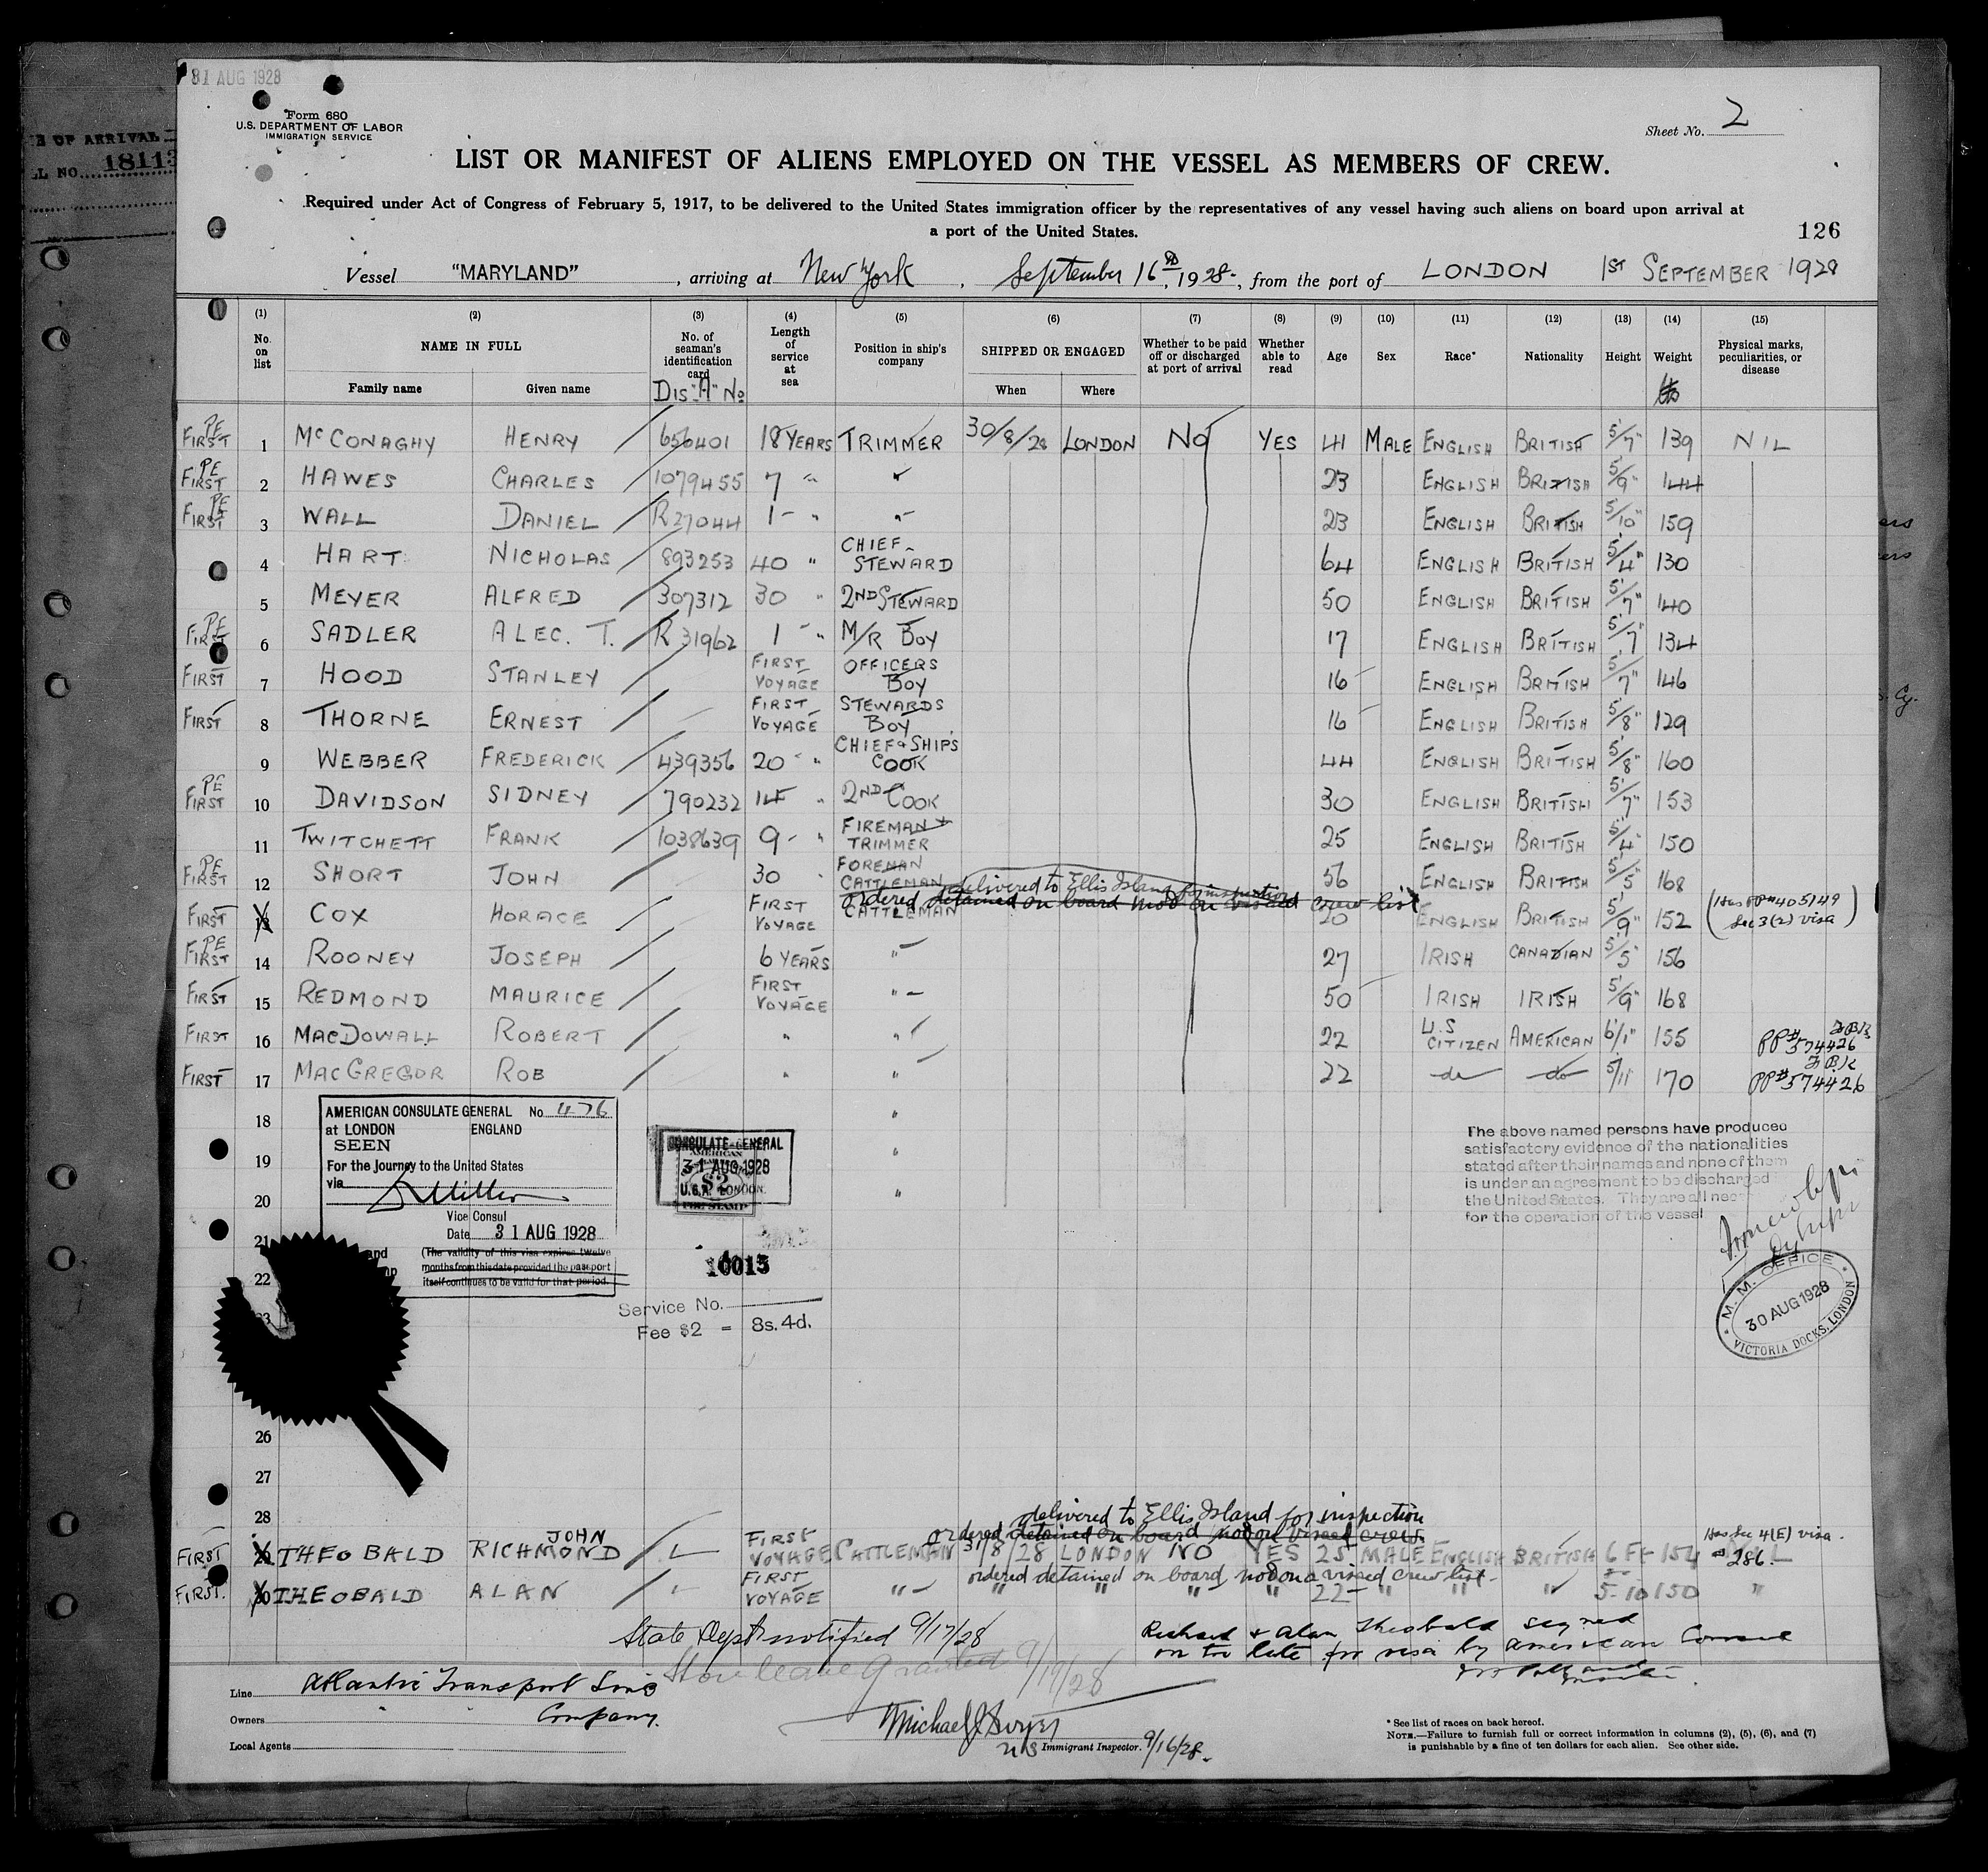 31 AUG 1928
Form 680
U.S. DEPARTMENT OF LABOR
IMMIGRATION SERVICE
E OF ARRIVAL
LL NO. 18113
Sheet No. 2
LIST OR MANIFEST OF ALIENS EMPLOYED ON THE VESSEL AS MEMBERS OF CREW.
Required under Act of Congress of February 5, 1917, to be delivered to the United States immigration officer by the representatives of any vessel having such aliens on board upon arrival at
a port of the United States.
126
Vessel "MARYLAND", arriving at New York, September 16th, 1928, from the port of LONDON 1ST SEPTEMBER 1928
(1) No. on list
(2) NAME IN FULL Family name Given name
(3) No. of seaman's identification card DIS "A" No
(4) Length of service at sea
(5) Position in ship's company
(6) SHIPPED OR ENGAGED When Where
(7) Whether to be paid off or discharged at port of arrival
(8) Whether able to read
(9) Age
(10) Sex
(11) Race*
(12) Nationality
(13) Height
(14) Weight lbs
(15) Physical marks, peculiarities, or disease
PE FIRST 1 McCONAGHY HENRY 656401 18 YEARS TRIMMER 30/8/28 LONDON NO YES 41 MALE ENGLISH BRITISH 5'/7" 139 NIL
PE FIRST 2 HAWES CHARLES 1079455 7 " " 23 ENGLISH BRITISH 5'/9" 144
PE FIRST 3 WALL DANIEL R27044 1 - " " 23 ENGLISH BRITISH 5'/10" 159
4 HART NICHOLAS 893253 40 " CHIEF STEWARD 64 ENGLISH BRITISH 5'/4" 130
5 MEYER ALFRED 307312 30 " 2ND STEWARD 50 ENGLISH BRITISH 5'/7" 140
PE FIRST 6 SADLER ALEC. T. R 31962 1 - " M/R BOY 17 ENGLISH BRITISH 5'/7" 134
FIRST 7 HOOD STANLEY FIRST VOYAGE OFFICERS BOY 16 ENGLISH BRITISH 5'/7" 146
FIRST 8 THORNE ERNEST FIRST VOYAGE STEWARDS BOY 16 ENGLISH BRITISH 5'/8" 129
9 WEBBER FREDERICK 439356 20 " CHIEF & SHIPS COOK 44 ENGLISH BRITISH 5'/8" 160
PE FIRST 10 DAVIDSON SIDNEY 790232 14 " 2ND COOK 30 ENGLISH BRITISH 5'/7" 153
11 TWITCHETT FRANK 1038639 9 - " FIREMAN & TRIMMER 25 ENGLISH BRITISH 5'/4" 150
PE FIRST 12 SHORT JOHN 30 " FOREMAN CATTLEMAN 56 ENGLISH BRITISH 5'/5" 168
delivered to Ellis Island for inspection
ordered detained on board not on visaed crew list
FIRST 13 COX HORACE FIRST VOYAGE CATTLEMAN 20 ENGLISH BRITISH 5'/9" 152 (Has PP#405149 Sec 3(2) visa)
PE FIRST 14 ROONEY JOSEPH 6 YEARS " 27 IRISH CANADIAN 5'/5" 156
FIRST 15 REDMOND MAURICE FIRST VOYAGE " 50 IRISH IRISH 5'/9" 168
FIRST 16 MACDOWALL ROBERT " " 22 U.S CITIZEN AMERICAN 6'/1" 155 PP# 574426
FIRST 17 MACGREGOR ROB " " 22 do do 5/11 170 PP# 574426
18 "
19 "
20 "
21
22
23
AMERICAN CONSULATE GENERAL No. 476
at LONDON ENGLAND
SEEN
For the Journey to the United States
via
Miller
Vice Consul
Date 31 AUG 1928
(The validity of this visa expires twelve
months from this date provided the passport
itself continues to be valid for that period.
CONSULATE-GENERAL
AMERICAN
31 AUG 1928
$2
U.S.A. LONDON.
FEE STAMP
10013
Service No.
Fee $2 = 8s. 4d.
The above named persons have produced
satisfactory evidence of the nationalities
stated after their names and none of them
is under an agreement to be discharged
the United States. They are all nec
for the operation of the vessel
M. M. OFFICE
30 AUG 1928
VICTORIA DOCKS, LONDON
26
27
28
delivered to Ellis Island for inspection
ordered detained on board not on visaed crew
FIRST 29 THEOBALD RICHMOND JOHN FIRST VOYAGE CATTLEMAN 31/8/28 LONDON NO YES 25 MALE ENGLISH BRITISH 6 FT 154 NIL Has Sec 4(E) visa #286
ordered detained on board not on a visaed crew list
FIRST. 30 THEOBALD ALAN FIRST VOYAGE " " " " " 22 " " " 5-10 150 "
State Dept notified 9/17/28
Shore leave granted 9/19/28
Richard & Alan Theobald signed
on too late for visa by American Consul
Master.
Line Atlantic Transport Line
Owners " Company.
Local Agents
Michael J Dwyer
US Immigrant Inspector. 9/16/28.
* See list of races on back hereof.
NOTE.—Failure to furnish full or correct information in columns (2), (5), (6), and (7)
is punishable by a fine of ten dollars for each alien. See other side.